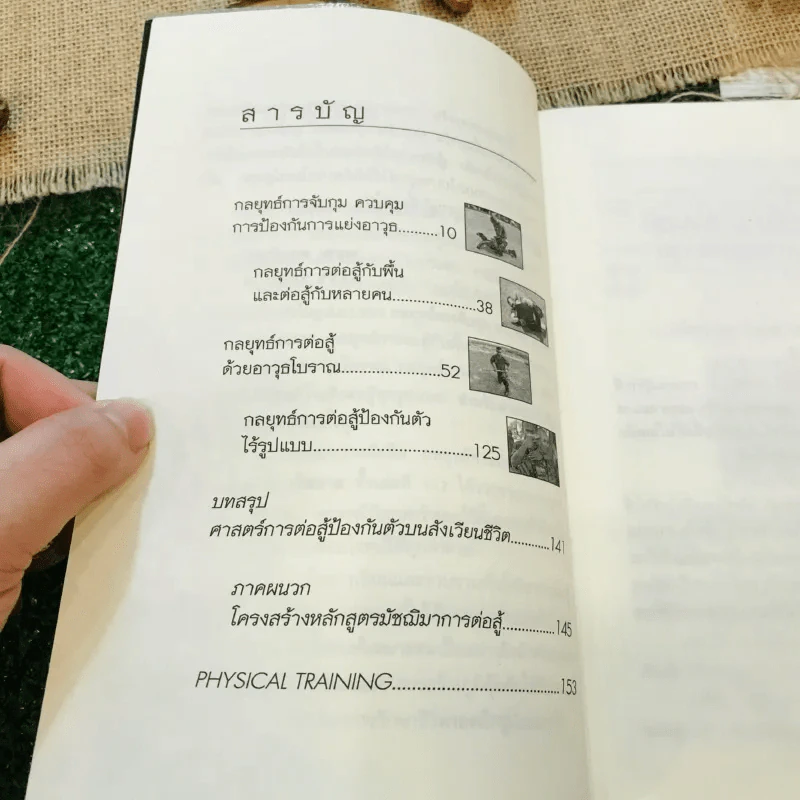 สารบัญ
กลยุทธ์การจับกุม ควบคุม
การป้องกันการแย่งอาวุธ..........10
กลยุทธ์การต่อสู้กับพื้น
และต่อสู้กับหลายคน.....................38
กลยุทธ์การต่อสู้
ด้วยอาวุธโบราณ.........................52
กลยุทธ์การต่อสู้ป้องกันตัว
ไร้รูปแบบ........................................125
บทสรุป
ศาสตร์การต่อสู้ป้องกันตัวบนสังเวียนชีวิต............141
ภาคผนวก
โครงสร้างหลักสูตรมัชฌิมาการต่อสู้...............145
PHYSICAL TRAINING..........................................153